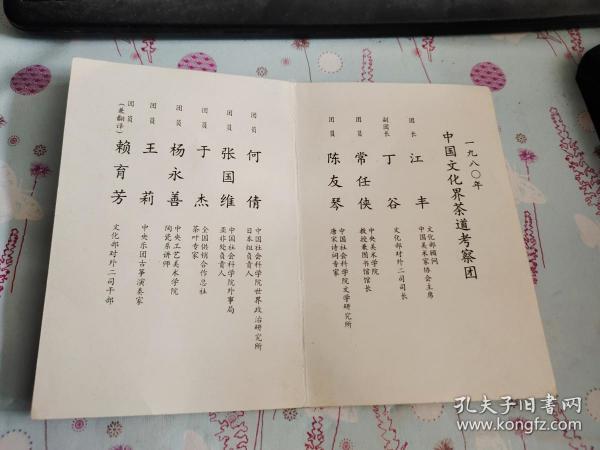 一九八〇年
中国文化界茶道考察团
团长 江丰 文化部顾问
中国美术家协会主席
副团长 丁谷 文化部对外二司司长
团员 常任侠 中央美术学院
教授兼图书馆馆长
团员 陈友琴 中国社会科学院文学研究所
唐宋诗词专家
团员 何倩 中国社会科学院世界政治研究所
日本组负责人
团员 张国维 中国社会科学院外事局
亚非处负责人
团员 于杰 全国供销合作总社
茶叶专家
团员 杨永善 中央工艺美术学院
陶瓷系讲师
团员 王莉 中央乐团古筝演奏家
团员
(兼翻译) 赖育芳 文化部对外二司干部
孔夫子旧书网